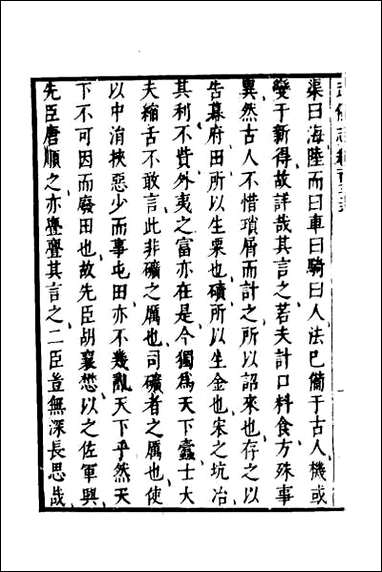 武備志卷一百三十五
渠曰海陸而曰車曰騎曰人法已簡于古人機或
變于新得故詳哉其言之若夫計口料食方殊事
異然古人不惜瑣屑而計之所以詔來也存之以
告幕府田所以生粟也礦所以生金也宋之坑冶
其利不貲外夷之富亦在是今獨為天下蠹士大
夫縮舌不敢言此非礦之厲也司礦者之厲也使
以中涓挾惡少而事屯田亦不幾亂天下乎然天
下不可因而廢田也故先臣胡襄懋以之佐軍興
先臣唐順之亦亹亹其言之二臣豈無深長思哉